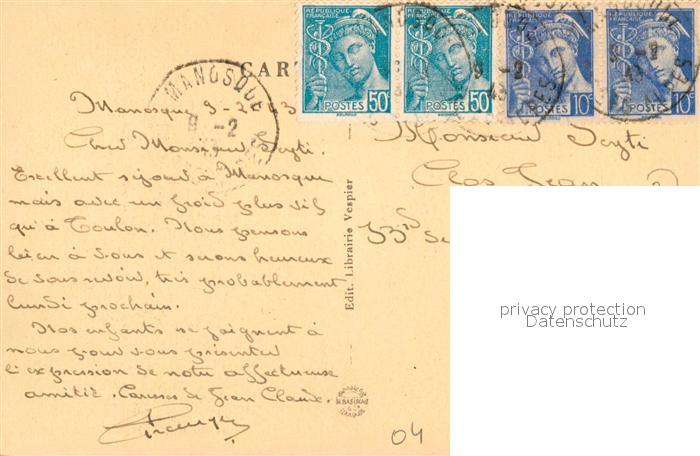 RÉPUBLIQUE FRANÇAISE POSTES 50c
RÉPUBLIQUE FRANÇAISE POSTES 50c
RÉPUBLIQUE FRANÇAISE POSTES 10c
RÉPUBLIQUE FRANÇAISE POSTES 10c
CART
MANOSQUE
9 -2
Manosque 9-2-43
Cher Monsieur
Excellent séjour à Manosque
mais avec un froid plus vif
qu'à Toulon. Nous pensons
bien à vous et serons heureux
de vous revoir, très probablement
lundi prochain.
Nos enfants se joignent à
nous pour vous présenter
l'expression de notre affectueuse
amitié. Caresses de Jean Claude.
Edit. Librairie Vespier
Monsieur
Clos Jean
privacy protection
Datenschutz
04